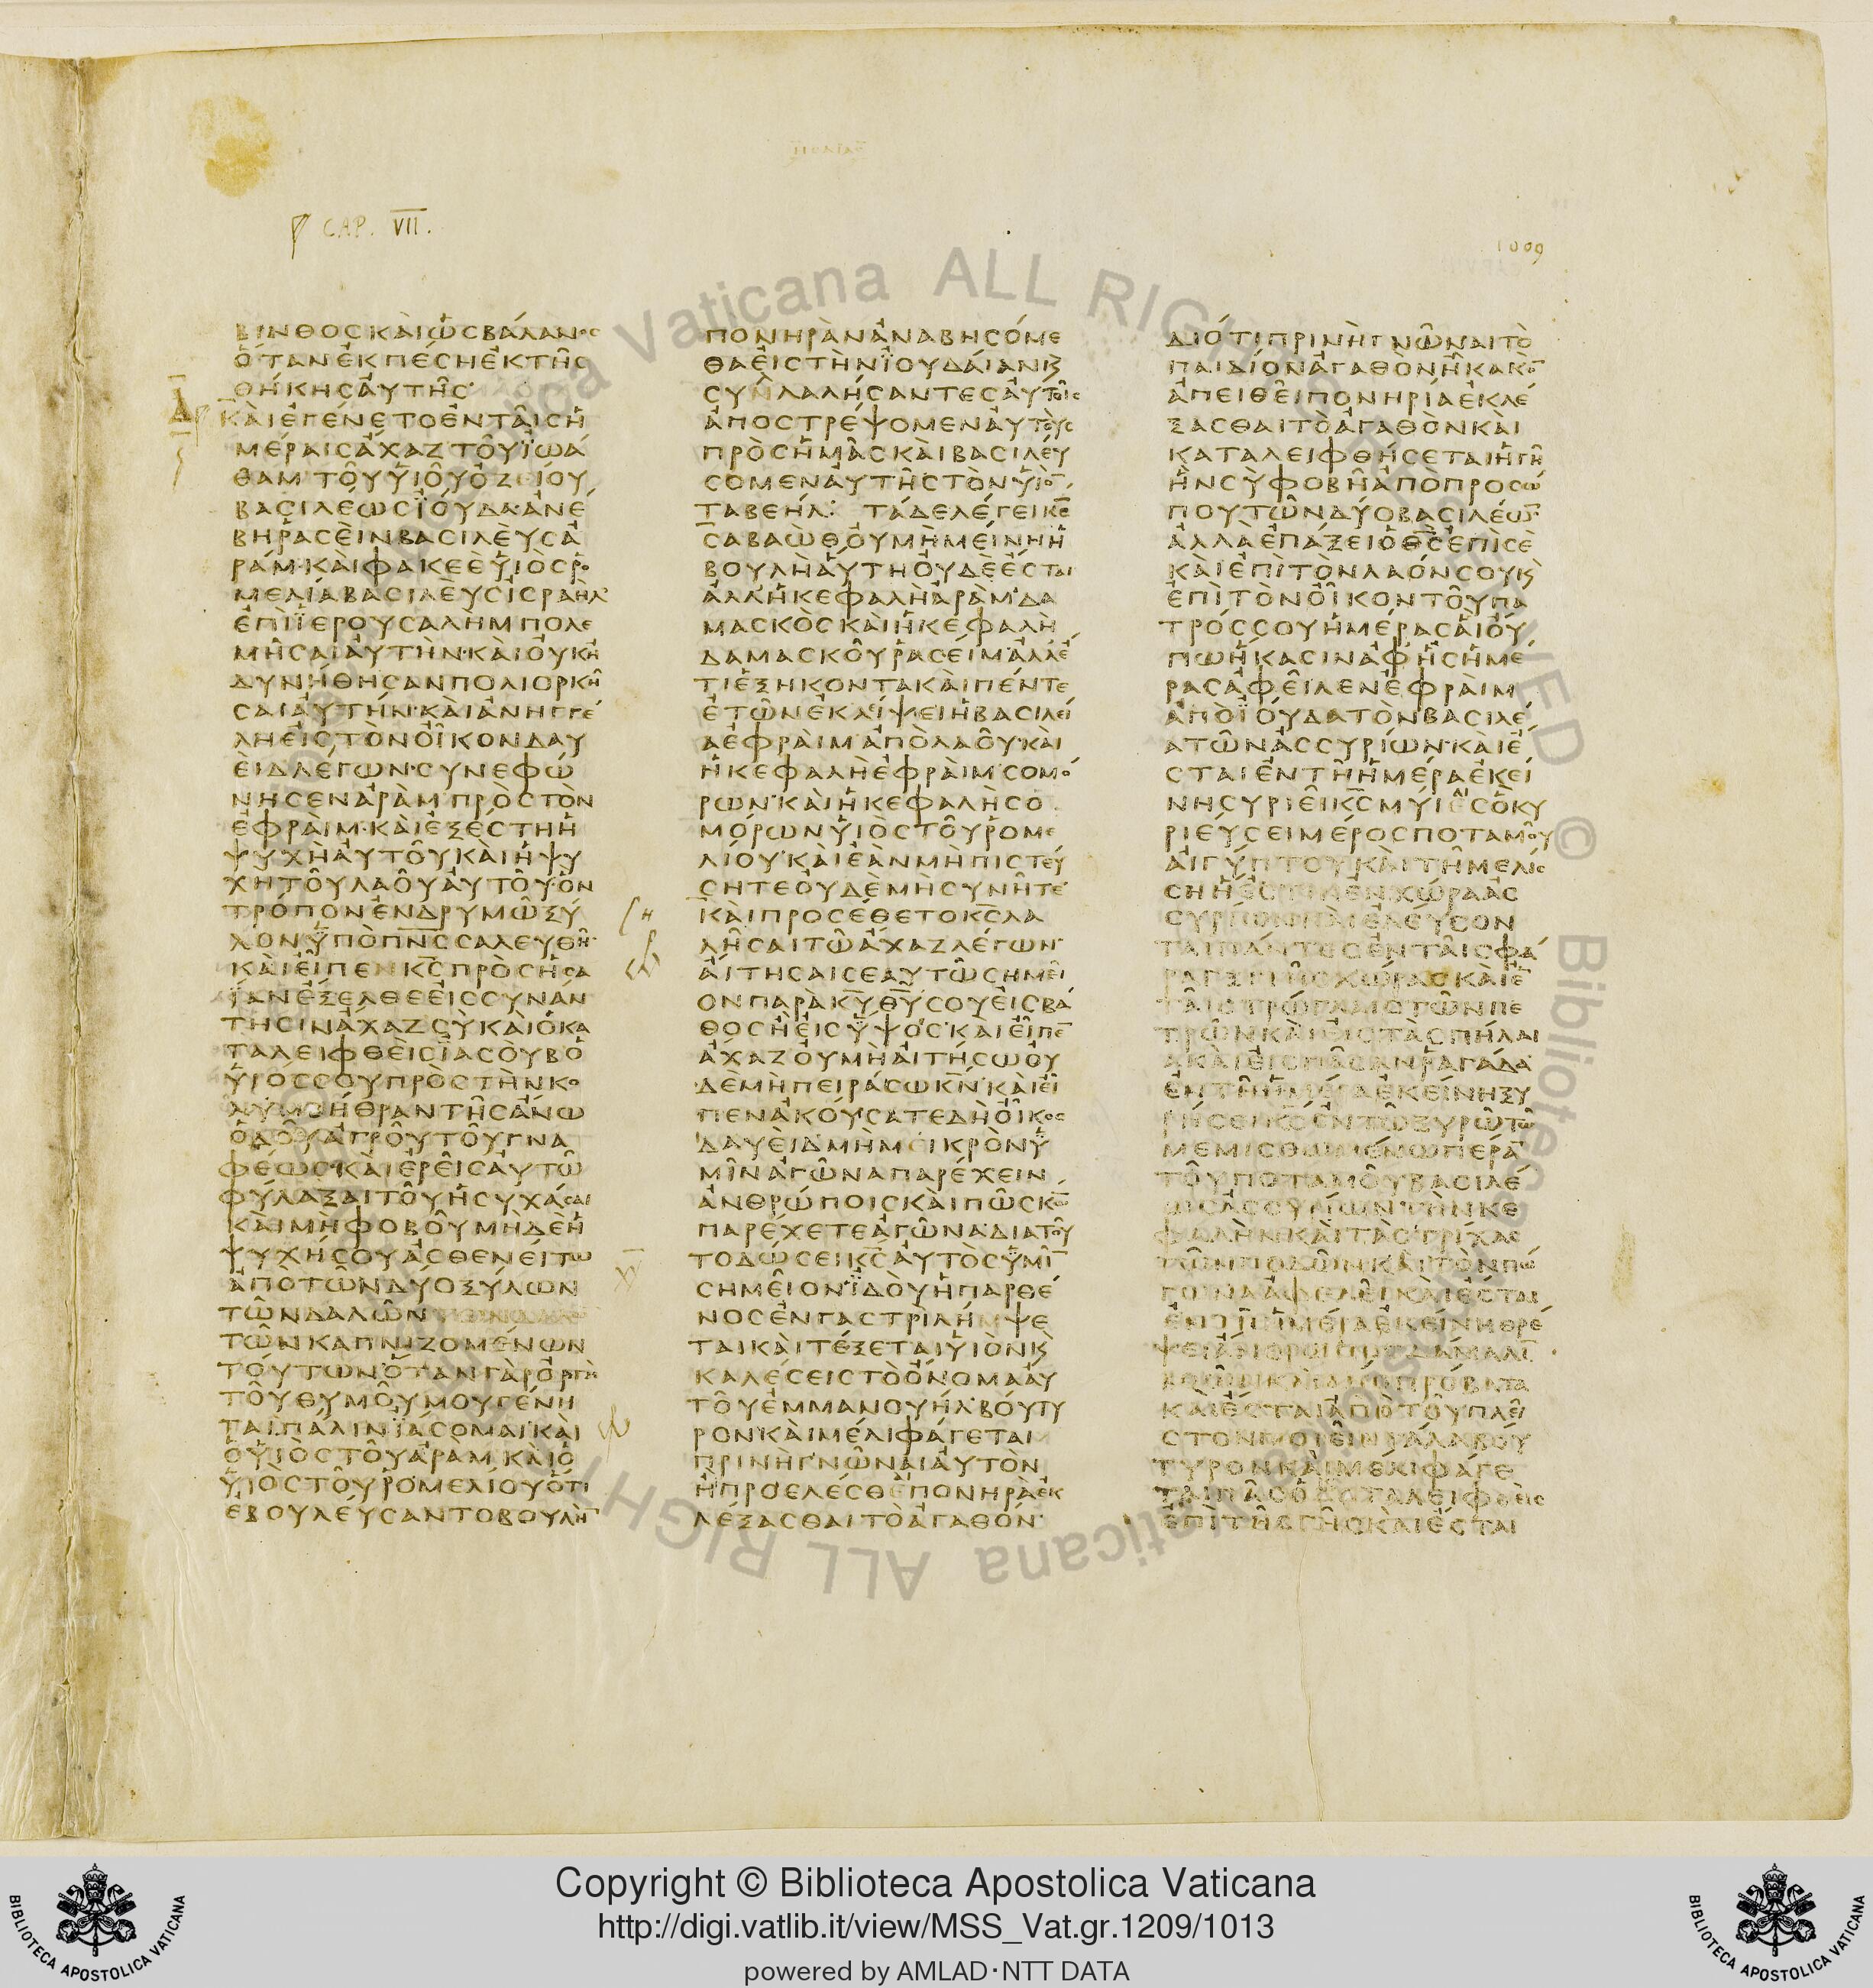 CAP. VII.
1009
ΒΙΝΘΟΣ ΚΑΙ ΩΣ ΒΑΛΑΝΟΣ
ΟΤΑΝ ΕΚΠΕΣΗ ΕΚ ΤΗΣ
ΘΗΚΗΣ ΑΥΤΗΣ
ΚΑΙ ΕΓΕΝΕΤΟ ΕΝ ΤΑΙΣ Η
ΜΕΡΑΙΣ ΑΧΑΖ ΤΟΥ ΙΩΑ
ΘΑΜ ΤΟΥ ΥΙΟΥ ΟΖΕΙΟΥ
ΒΑΣΙΛΕΩΣ ΙΟΥΔΑ ΑΝΕ
ΒΗ ΡΑΣΕΙΝ ΒΑΣΙΛΕΥΣ Α
ΡΑΜ ΚΑΙ ΦΑΚΕΕ ΥΙΟΣ ΡΟ
ΜΕΛΙΑ ΒΑΣΙΛΕΥΣ ΙΣΡΑΗΛ
ΕΠΙ ΙΕΡΟΥΣΑΛΗΜ ΠΟΛΕ
ΜΗΣΑΙ ΑΥΤΗΝ ΚΑΙ ΟΥΚ Η
ΔΥΝΗΘΗΣΑΝ ΠΟΛΙΟΡΚΗ
ΣΑΙ ΑΥΤΗΝ ΚΑΙ ΑΝΗΓΓΕ
ΛΗ ΕΙΣ ΤΟΝ ΟΙΚΟΝ ΔΑΥ
ΕΙΔ ΛΕΓΩΝ ΣΥΝΕΦΩ
ΝΗΣΕΝ ΑΡΑΜ ΠΡΟΣ ΤΟΝ
ΕΦΡΑΙΜ ΚΑΙ ΕΞΕΣΤΗ Η
ΨΥΧΗ ΑΥΤΟΥ ΚΑΙ Η ΨΥ
ΧΗ ΤΟΥ ΛΑΟΥ ΑΥΤΟΥ ΟΝ
ΤΡΟΠΟΝ ΕΝ ΔΡΥΜΩ ΞΥ
ΛΟΝ ΥΠΟ ΠΝΣ ΣΑΛΕΥΘΗ
ΚΑΙ ΕΙΠΕΝ ΚΣ ΠΡΟΣ ΗΣΑ
ΙΑΝ ΕΞΕΛΘΕ ΕΙΣ ΣΥΝΑΝ
ΤΗΣΙΝ ΑΧΑΖ ΣΥ ΚΑΙ Ο ΚΑ
ΤΑΛΕΙΦΘΕΙΣ ΙΑΣΟΥΒ Ο
ΥΙΟΣ ΣΟΥ ΠΡΟΣ ΤΗΝ ΚΟ
ΛΥΜΒΗΘΡΑΝ ΤΗΣ ΑΝΩ
ΟΔΟΥ ΑΓΡΟΥ ΤΟΥ ΓΝΑ
ΦΕΩΣ ΚΑΙ ΕΡΕΙΣ ΑΥΤΩ
ΦΥΛΑΞΑΙ ΤΟΥ ΗΣΥΧΑΣΑΙ
ΚΑΙ ΜΗ ΦΟΒΟΥ ΜΗΔΕ Η
ΨΥΧΗ ΣΟΥ ΑΣΘΕΝΕΙΤΩ
ΑΠΟ ΤΩΝ ΔΥΟ ΞΥΛΩΝ
ΤΩΝ ΔΑΛΩΝ
ΤΩΝ ΚΑΠΝΙΖΟΜΕΝΩΝ
ΤΟΥΤΩΝ ΟΤΑΝ ΓΑΡ ΟΡΓΗ
ΤΟΥ ΘΥΜΟΥ ΜΟΥ ΓΕΝΗ
ΤΑΙ ΠΑΛΙΝ ΙΑΣΟΜΑΙ ΚΑΙ
Ο ΥΙΟΣ ΤΟΥ ΑΡΑΜ ΚΑΙ Ο
ΥΙΟΣ ΤΟΥ ΡΟΜΕΛΙΟΥ ΟΤΙ
ΕΒΟΥΛΕΥΣΑΝΤΟ ΒΟΥΛΗΝ
ΠΟΝΗΡΑΝ ΑΝΑΒΗΣΟΜΕ
ΘΑ ΕΙΣ ΤΗΝ ΙΟΥΔΑΙΑΝ ΚΑΙ
ΣΥΝΛΑΛΗΣΑΝΤΕΣ ΑΥΤΟΙΣ
ΑΠΟΣΤΡΕΨΟΜΕΝ ΑΥΤΟΥΣ
ΠΡΟΣ ΗΜΑΣ ΚΑΙ ΒΑΣΙΛΕΥ
ΣΟΜΕΝ ΑΥΤΗΣ ΤΟΝ ΥΙΟΝ
ΤΑΒΕΗΛ ΤΑΔΕ ΛΕΓΕΙ ΚΣ
ΣΑΒΑΩΘ ΟΥ ΜΗ ΜΕΙΝΗ Η
ΒΟΥΛΗ ΑΥΤΗ ΟΥΔΕ ΕΣΤΑΙ
ΑΛΛ Η ΚΕΦΑΛΗ ΑΡΑΜ ΔΑ
ΜΑΣΚΟΣ ΚΑΙ Η ΚΕΦΑΛΗ
ΔΑΜΑΣΚΟΥ ΡΑΣΕΙΜ ΑΛΛ Ε
ΤΙ ΕΞΗΚΟΝΤΑ ΚΑΙ ΠΕΝΤΕ
ΕΤΩΝ ΕΚΛΙΨΕΙ Η ΒΑΣΙΛΕΙ
Α ΕΦΡΑΙΜ ΑΠΟ ΛΑΟΥ ΚΑΙ
Η ΚΕΦΑΛΗ ΕΦΡΑΙΜ ΣΟΜΟ
ΡΩΝ ΚΑΙ Η ΚΕΦΑΛΗ ΣΟ
ΜΟΡΩΝ ΥΙΟΣ ΤΟΥ ΡΟΜΕ
ΛΙΟΥ ΚΑΙ ΕΑΝ ΜΗ ΠΙΣΤΕΥ
ΣΗΤΕ ΟΥΔΕ ΜΗ ΣΥΝΗΤΕ
ΚΑΙ ΠΡΟΣΕΘΕΤΟ ΚΣ ΛΑ
ΛΗΣΑΙ ΤΩ ΑΧΑΖ ΛΕΓΩΝ
ΑΙΤΗΣΑΙ ΣΕΑΥΤΩ ΣΗΜΕΙ
ΟΝ ΠΑΡΑ ΚΥ ΘΥ ΣΟΥ ΕΙΣ ΒΑ
ΘΟΣ Η ΕΙΣ ΥΨΟΣ ΚΑΙ ΕΙΠΕΝ
ΑΧΑΖ ΟΥ ΜΗ ΑΙΤΗΣΩ ΟΥ
ΔΕ ΜΗ ΠΕΙΡΑΣΩ ΚΝ ΚΑΙ ΕΙ
ΠΕΝ ΑΚΟΥΣΑΤΕ ΔΗ ΟΙΚΟΣ
ΔΑΥΕΙΔ ΜΗ ΜΕΙΚΡΟΝ Υ
ΜΙΝ ΑΓΩΝΑ ΠΑΡΕΧΕΙΝ
ΑΝΘΡΩΠΟΙΣ ΚΑΙ ΠΩΣ ΚΩ
ΠΑΡΕΧΕΤΕ ΑΓΩΝΑ ΔΙΑ ΤΟΥ
ΤΟ ΔΩΣΕΙ ΚΣ ΑΥΤΟΣ ΥΜΙΝ
ΣΗΜΕΙΟΝ ΙΔΟΥ Η ΠΑΡΘΕ
ΝΟΣ ΕΝ ΓΑΣΤΡΙ ΛΗΜΨΕ
ΤΑΙ ΚΑΙ ΤΕΞΕΤΑΙ ΥΙΟΝ ΚΑΙ
ΚΑΛΕΣΕΙΣ ΤΟ ΟΝΟΜΑ ΑΥ
ΤΟΥ ΕΜΜΑΝΟΥΗΛ ΒΟΥΤΥ
ΡΟΝ ΚΑΙ ΜΕΛΙ ΦΑΓΕΤΑΙ
ΠΡΙΝ Η ΓΝΩΝΑΙ ΑΥΤΟΝ
Η ΠΡΟΕΛΕΣΘΕ ΠΟΝΗΡΑ ΕΚ
ΛΕΞΑΣΘΑΙ ΤΟ ΑΓΑΘΟΝ
ΔΙΟΤΙ ΠΡΙΝ Η ΓΝΩΝΑΙ ΤΟ
ΠΑΙΔΙΟΝ ΑΓΑΘΟΝ Η ΚΑΚΟΝ
ΑΠΕΙΘΕΙ ΠΟΝΗΡΙΑ ΕΚΛΕ
ΞΑΣΘΑΙ ΤΟ ΑΓΑΘΟΝ ΚΑΙ
ΚΑΤΑΛΕΙΦΘΗΣΕΤΑΙ Η ΓΗ
ΗΝ ΣΥ ΦΟΒΗ ΑΠΟ ΠΡΟΣΩ
ΠΟΥ ΤΩΝ ΔΥΟ ΒΑΣΙΛΕΩΝ
ΑΛΛΑ ΕΠΑΞΕΙ Ο ΘΣ ΕΠΙ ΣΕ
ΚΑΙ ΕΠΙ ΤΟΝ ΛΑΟΝ ΣΟΥ ΚΑΙ
ΕΠΙ ΤΟΝ ΟΙΚΟΝ ΤΟΥ ΠΑ
ΤΡΟΣ ΣΟΥ ΗΜΕΡΑΣ ΑΙ ΟΥ
ΠΩ ΗΚΑΣΙΝ ΑΦ ΗΣ ΗΜΕ
ΡΑΣ ΑΦΕΙΛΕΝ ΕΦΡΑΙΜ
ΑΠΟ ΙΟΥΔΑ ΤΟΝ ΒΑΣΙΛΕ
Α ΤΩΝ ΑΣΣΥΡΙΩΝ ΚΑΙ Ε
ΣΤΑΙ ΕΝ ΤΗ ΗΜΕΡΑ ΕΚΕΙ
ΝΗ ΣΥΡΙΕΙ ΚΣ ΜΥΙΑΙΣ Ο ΚΥ
ΡΙΕΥΣΕΙ ΜΕΡΟΣ ΠΟΤΑΜΟΥ
ΑΙΓΥΠΤΟΥ ΚΑΙ ΤΗ ΜΕΛΙΣ
ΣΗ Η ΕΣΤΙΝ ΕΝ ΧΩΡΑ ΑΣ
ΣΥΡΙΩΝ ΚΑΙ ΕΛΕΥΣΟΝ
ΤΑΙ ΠΑΝΤΕΣ ΕΝ ΤΑΙΣ ΦΑ
ΡΑΓΞΙ ΤΗΣ ΧΩΡΑΣ ΚΑΙ ΕΝ
ΤΑΙΣ ΤΡΩΓΛΑΙΣ ΤΩΝ ΠΕ
ΤΡΩΝ ΚΑΙ ΕΙΣ ΤΑ ΣΠΗΛΑΙ
Α ΚΑΙ ΕΙΣ ΠΑΣΑΝ ΡΑΓΑΔΑ
ΕΝ ΤΗ ΗΜΕΡΑ ΕΚΕΙΝΗ ΞΥ
ΡΗΣΕΙ ΚΣ ΕΝ ΤΩ ΞΥΡΩ ΤΩ
ΜΕΜΙΣΘΩΜΕΝΩ ΠΕΡΑΝ
ΤΟΥ ΠΟΤΑΜΟΥ ΒΑΣΙΛΕ
ΩΣ ΑΣΣΥΡΙΩΝ ΤΗΝ ΚΕ
ΦΑΛΗΝ ΚΑΙ ΤΑΣ ΤΡΙΧΑΣ
ΤΩΝ ΠΟΔΩΝ ΚΑΙ ΤΟΝ ΠΩ
ΓΩΝΑ ΑΦΕΛΕΙ ΚΑΙ ΕΣΤΑΙ
ΕΝ ΤΗ ΗΜΕΡΑ ΕΚΕΙΝΗ ΘΡΕ
ΨΕΙ ΑΝΘΡΩΠΟΣ ΔΑΜΑΛΙΝ
ΒΟΩΝ ΚΑΙ ΔΥΟ ΠΡΟΒΑΤΑ
ΚΑΙ ΕΣΤΑΙ ΑΠΟ ΤΟΥ ΠΛΕΙ
ΣΤΟΝ ΠΟΙΕΙΝ ΓΑΛΑ ΒΟΥ
ΤΥΡΟΝ ΚΑΙ ΜΕΛΙ ΦΑΓΕ
ΤΑΙ ΠΑΣ Ο ΚΑΤΑΛΕΙΦΘΕΙΣ
ΕΠΙ ΤΗΣ ΓΗΣ ΚΑΙ ΕΣΤΑΙ
Copyright © Biblioteca Apostolica Vaticana
http://digi.vatlib.it/view/MSS_Vat.gr.1209/1013
powered by AMLAD·NTT DATA
BIBLIOTECA APOSTOLICA VATICANA
BIBLIOTECA APOSTOLICA VATICANA